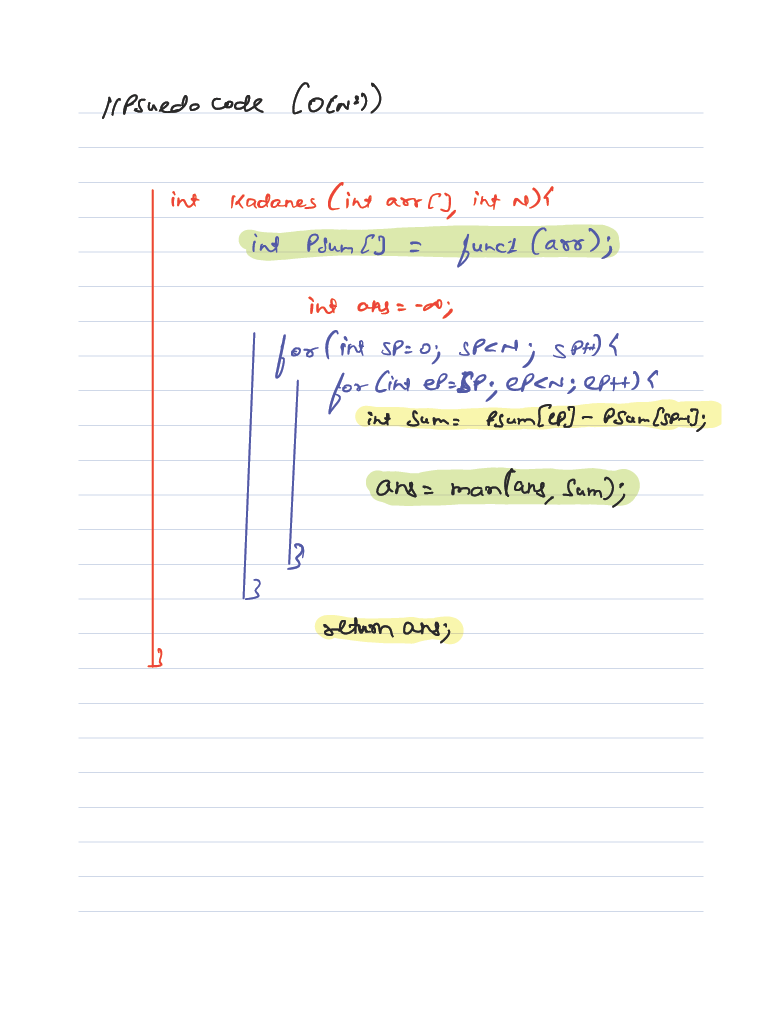 //Psuedo code (O(N²))
int Kadanes (int arr[], int N){
int Psum[] = func1 (arr);
int ans = -∞;
for(int SP=0; SP<N; SP++){
for(int eP=SP; eP<N; eP++){
int sum = Psum[eP] - Psum[SP-1];
ans = max(ans, sum);
}
}
return ans;
}